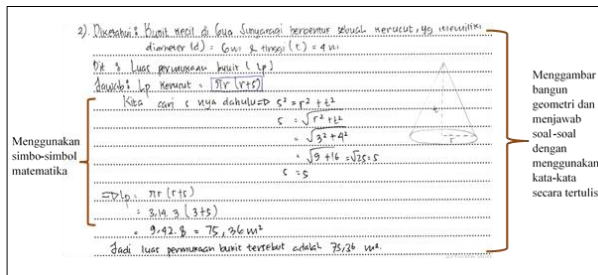 2). Diketahui : Bukit kecil di Gua Sunyaragi berbentuk sebuah kerucut, yg memiliki
diameter (d) = 6 m & tinggi (t) = 4 m
Dit : Luas permukaan bukit (Lp)
Jawab : Lp kerucut = πr (r+s)
Kita cari s nya dahulu => s² = r² + t²
s = √r² + t²
= √3² + 4²
= √9 + 16 = √25 = 5
s = 5
=> Lp : πr (r+s)
= 3,14 . 3 (3+5)
= 9,42 . 8 = 75,36 m²
Jadi luas permukaan bukit tersebut adalah 75,36 m².
t
r
Menggunakan
simbo-simbol
matematika
Menggambar
bangun
geometri dan
menjawab
soal-soal
dengan
menggunakan
kata-kata
secara tertulis